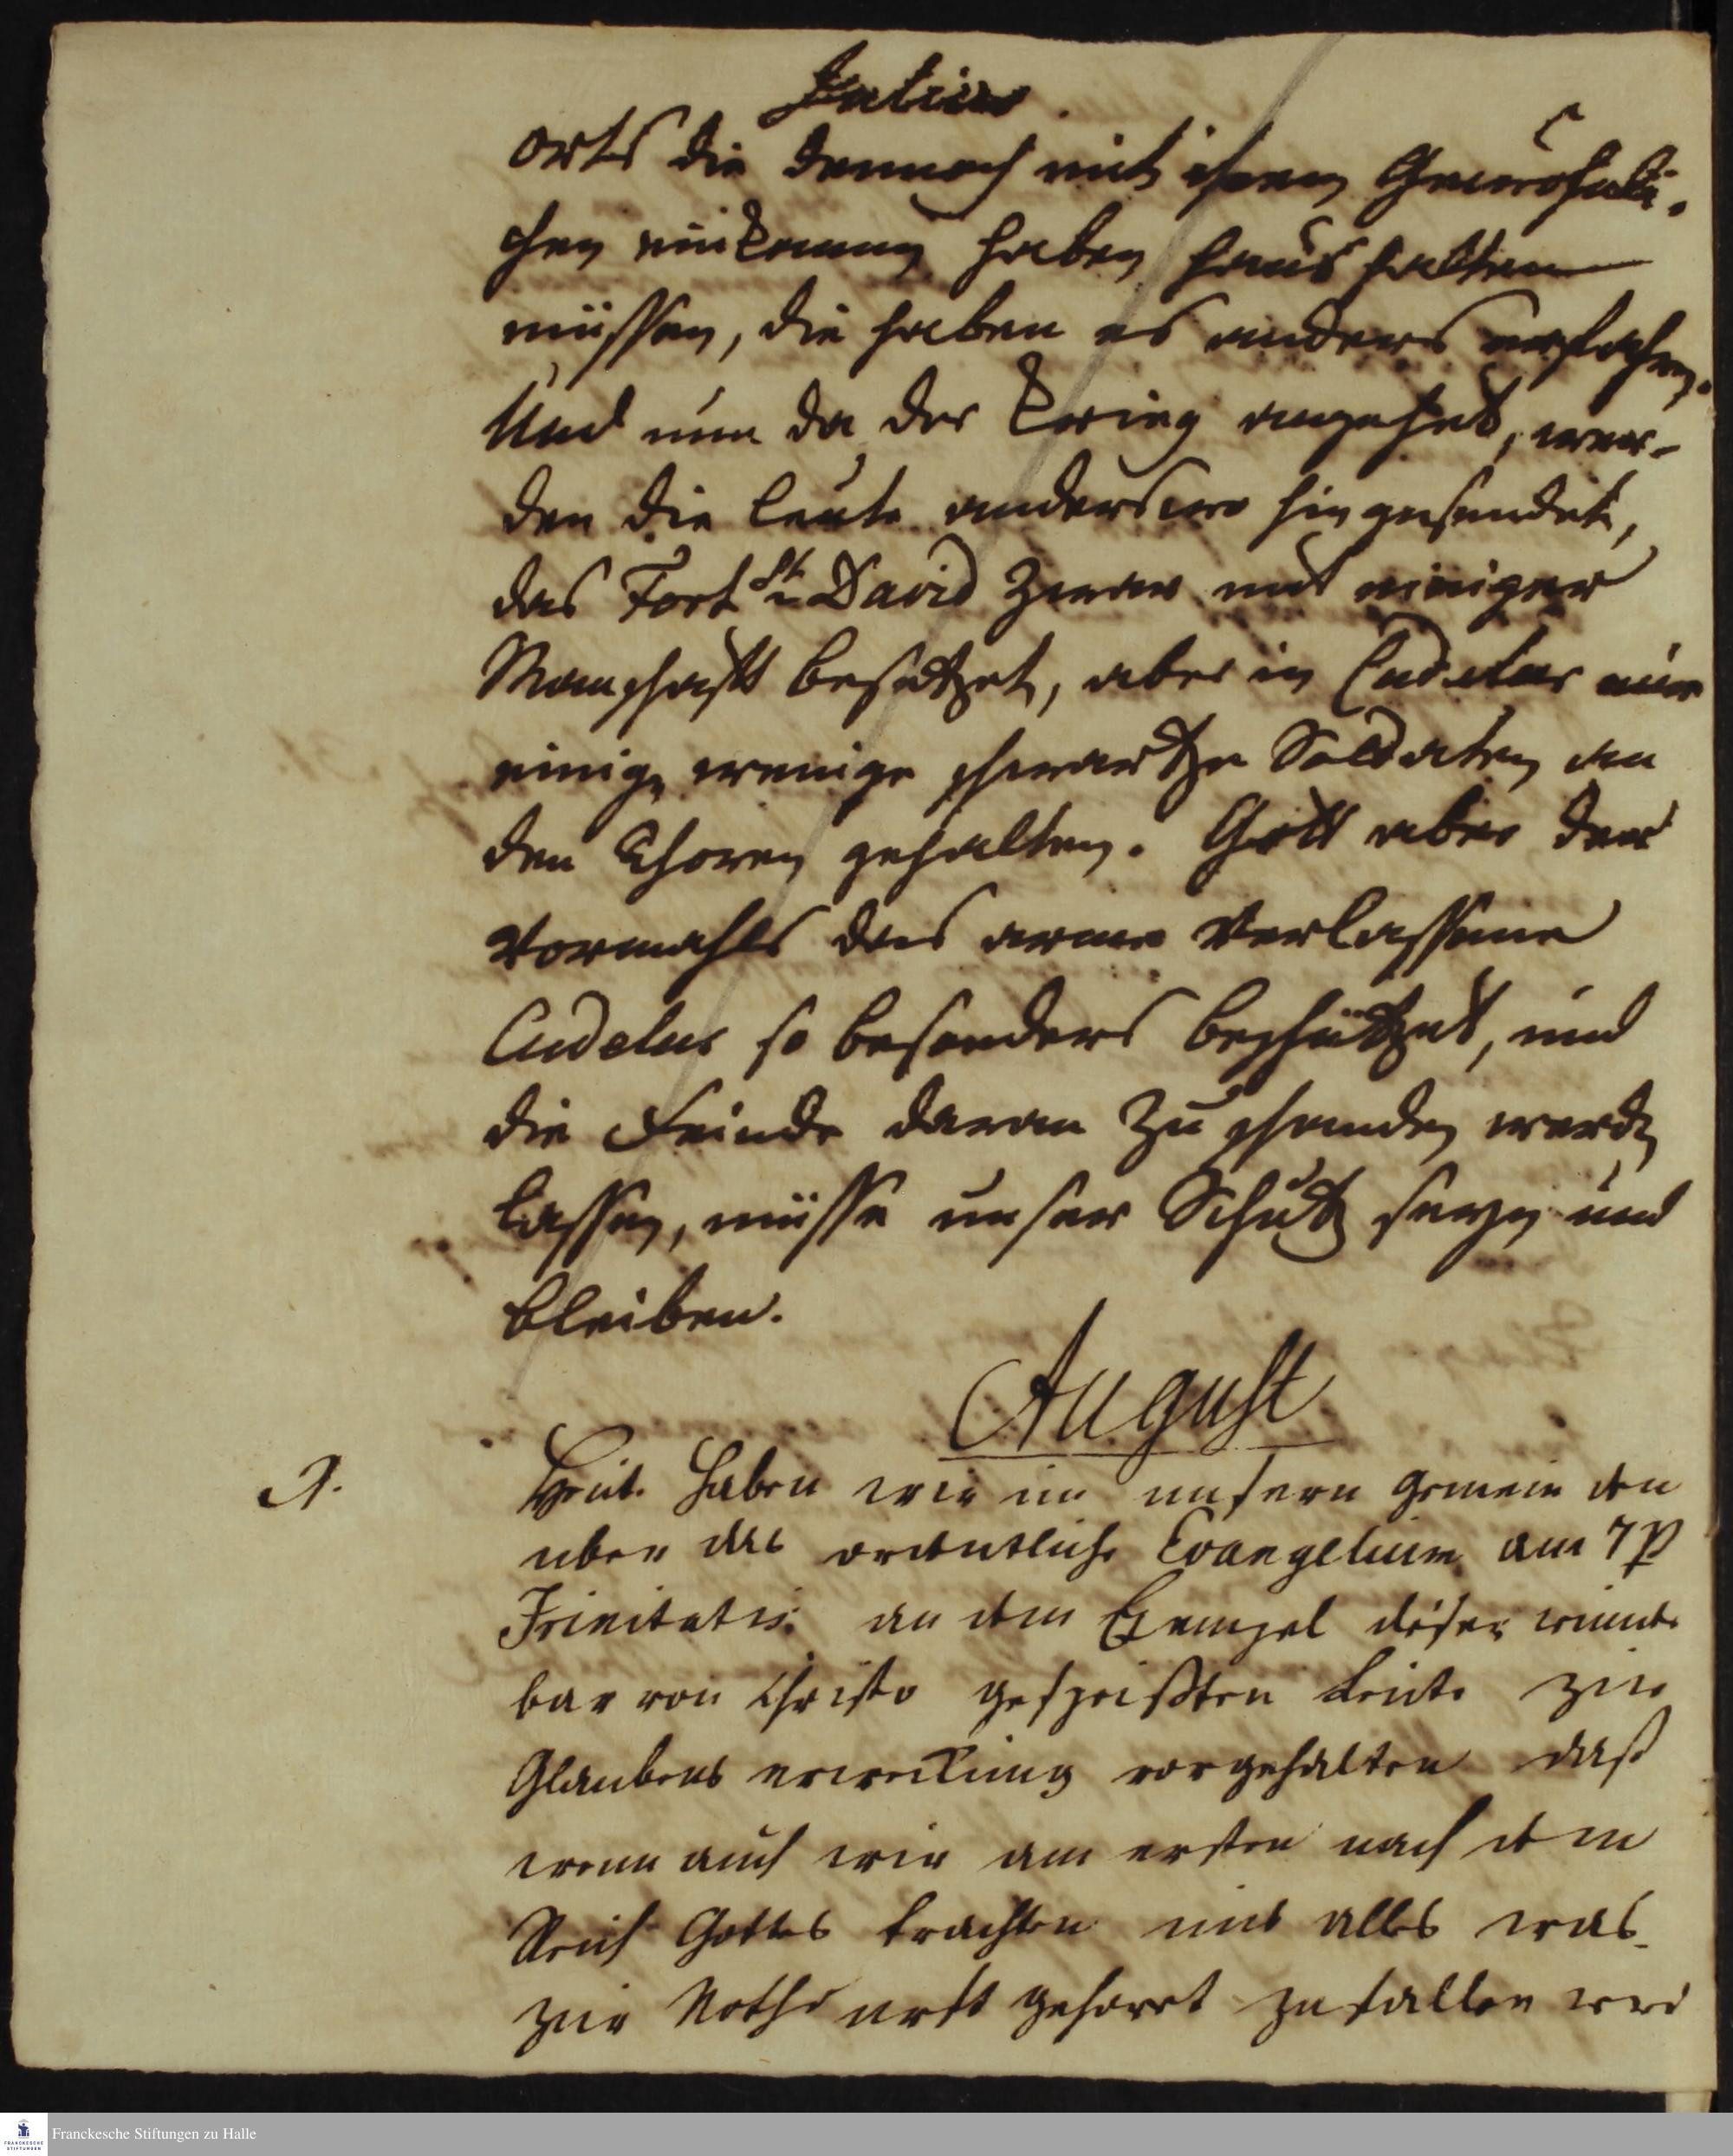 Julius
orts die dennoch mit ihren Gewöhnli-
chen einkommen haben haushalten
müssen, die haben es anders erfahren.
Und nun da der Krieg angehet, wer-
den die Leute anderswo hingesendet,
das Fort St. David zwar mit einiger
Manschafft besetzet, aber in Cudelur nur
einige wenige schwartze Soldaten an
den Thoren gehalten. Gott aber der
vormahls das arme verlassene
Cudelur so besonders beschützet, und
die Feinde daran zu schanden werden
lassen, müsse unser Schutz seyn und
bleiben.
August
Heut haben wir in unsern Gemeinden
über das ordentliche Evangelium am 7 p
Trinitatis an dem Exempel dieser wunder
bar von Christo gespeißten Leute zur
Glaubens erweckung vorgehalten daß
wenn auch wir am ersten nach dem
Reich Gottes trachten uns alles was
zur Nothdurft gehöret zufallen wer
Franckesche Stiftungen zu Halle